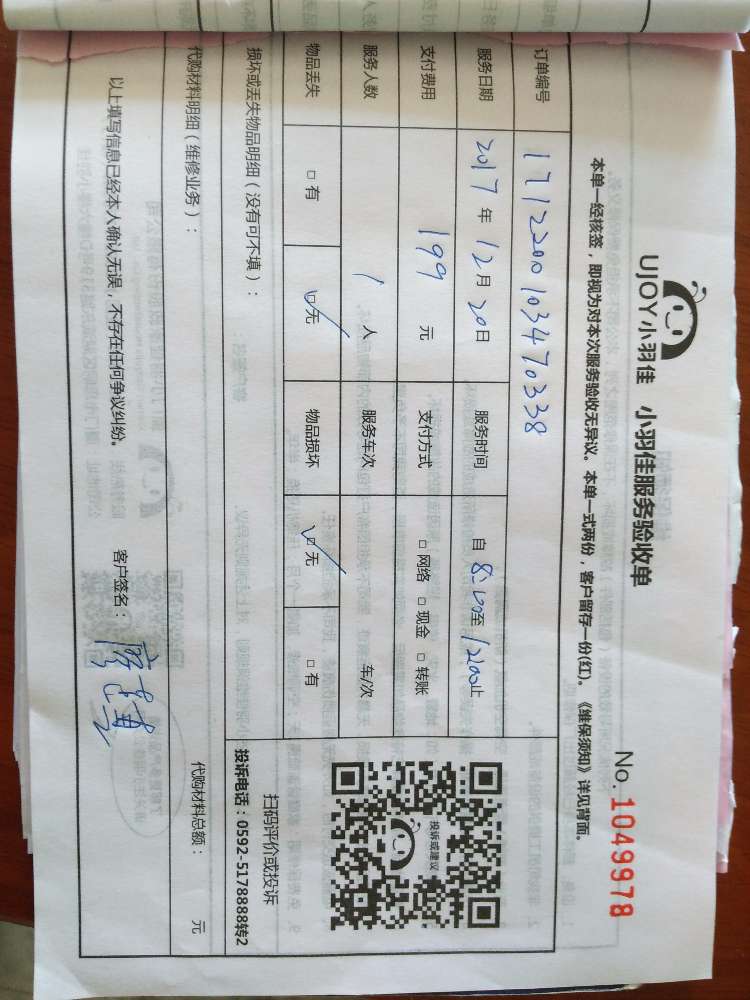 UJOY小羽佳 小羽佳服务验收单
No. 1049978
本单一经核签，即视为对本次服务验收无异议。本单一式两份，客户留存一份(红)。《维保须知》详见背面。
订单编号 1712200103470338
服务日期 2017年12月20日 服务时间 自8:00至12:00止
支付费用 199元 支付方式 □网络 □现金 □转账
服务人数 1人 服务车次 车/次
物品丢失 □有 ☑无 物品损坏 ☑无 □有
投诉或建议
扫码评价或投诉
投诉电话：0592-5178888转2
损坏或丢失物品明细（没有可不填）：
代购材料明细（维修业务）： 代购材料总额： 元
以上填写信息已经本人确认无误，不存在任何争议纠纷。 客户签名：